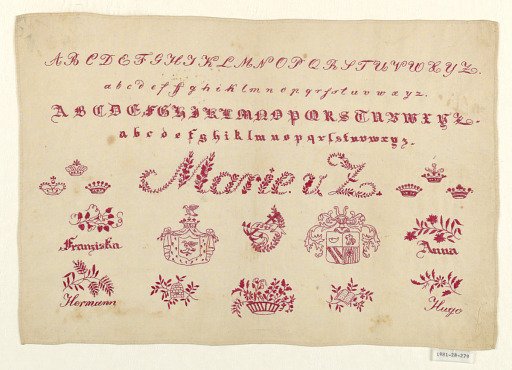 A B C D E F G H I K L M N O P Q R S T U V W X Y Z.
a b c d e f f g h i k l m n o p q r ſ s t u v w x y z.
A B C D E F G H I K L M N O P Q R S T U V W X Y Z.
a b c d e f g h i k l m n o p q r ſ s t u v w x y z.
Marie. v. Z.
Franziska
Anna
Hermann
Hugo
1981-28-279